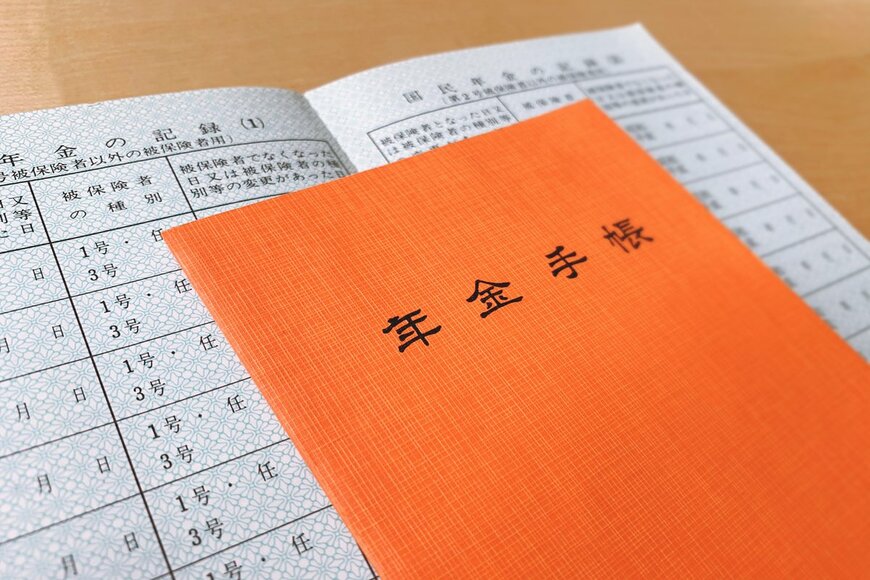 年金の記録(1)
号被保険者以外の被保険者用)
被保険者
の種別
被保険者でなくなっ
日又は被保険者の種
別等の変更があった
日又
別等
た日
日
1号・任
3号
月 日
1号・任
3号
月 日
1号・任
3号
月 日
1号・任
3号
月 日
1号・任
3号
1号・任
国民年金の記録
(第2号被保険者以外の被保険者用
被保険者となった日又
は被保険者の種別等
被保険者
年金手帳